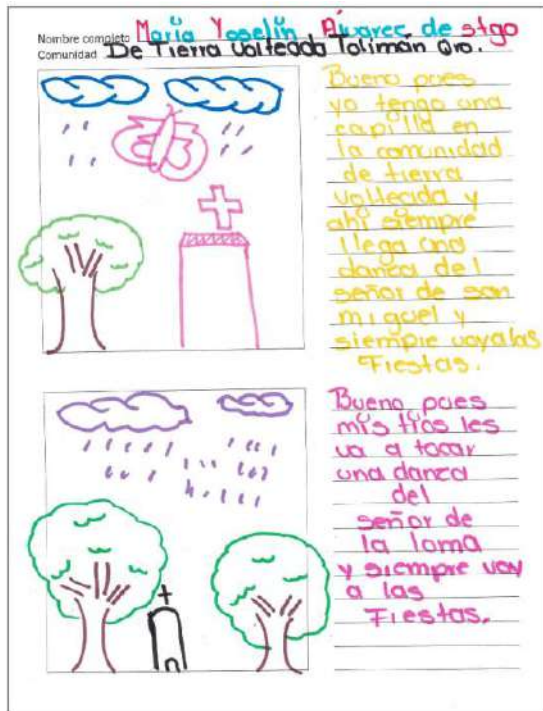 Nombre completo María Yoselin Álvarez de stgo
Comunidad De Tierra Volteada Tolimán Qro.
Bueno pues
yo tengo una
capilla en
la comunidad
de tierra
volteada y
ahí siempre
llega una
danza del
señor de san
miguel y
siempre voy a las
Fiestas.
Bueno pues
mis tíos les
va a tocar
una danza
del
señor de
la loma
y siempre voy
a las
Fiestas.